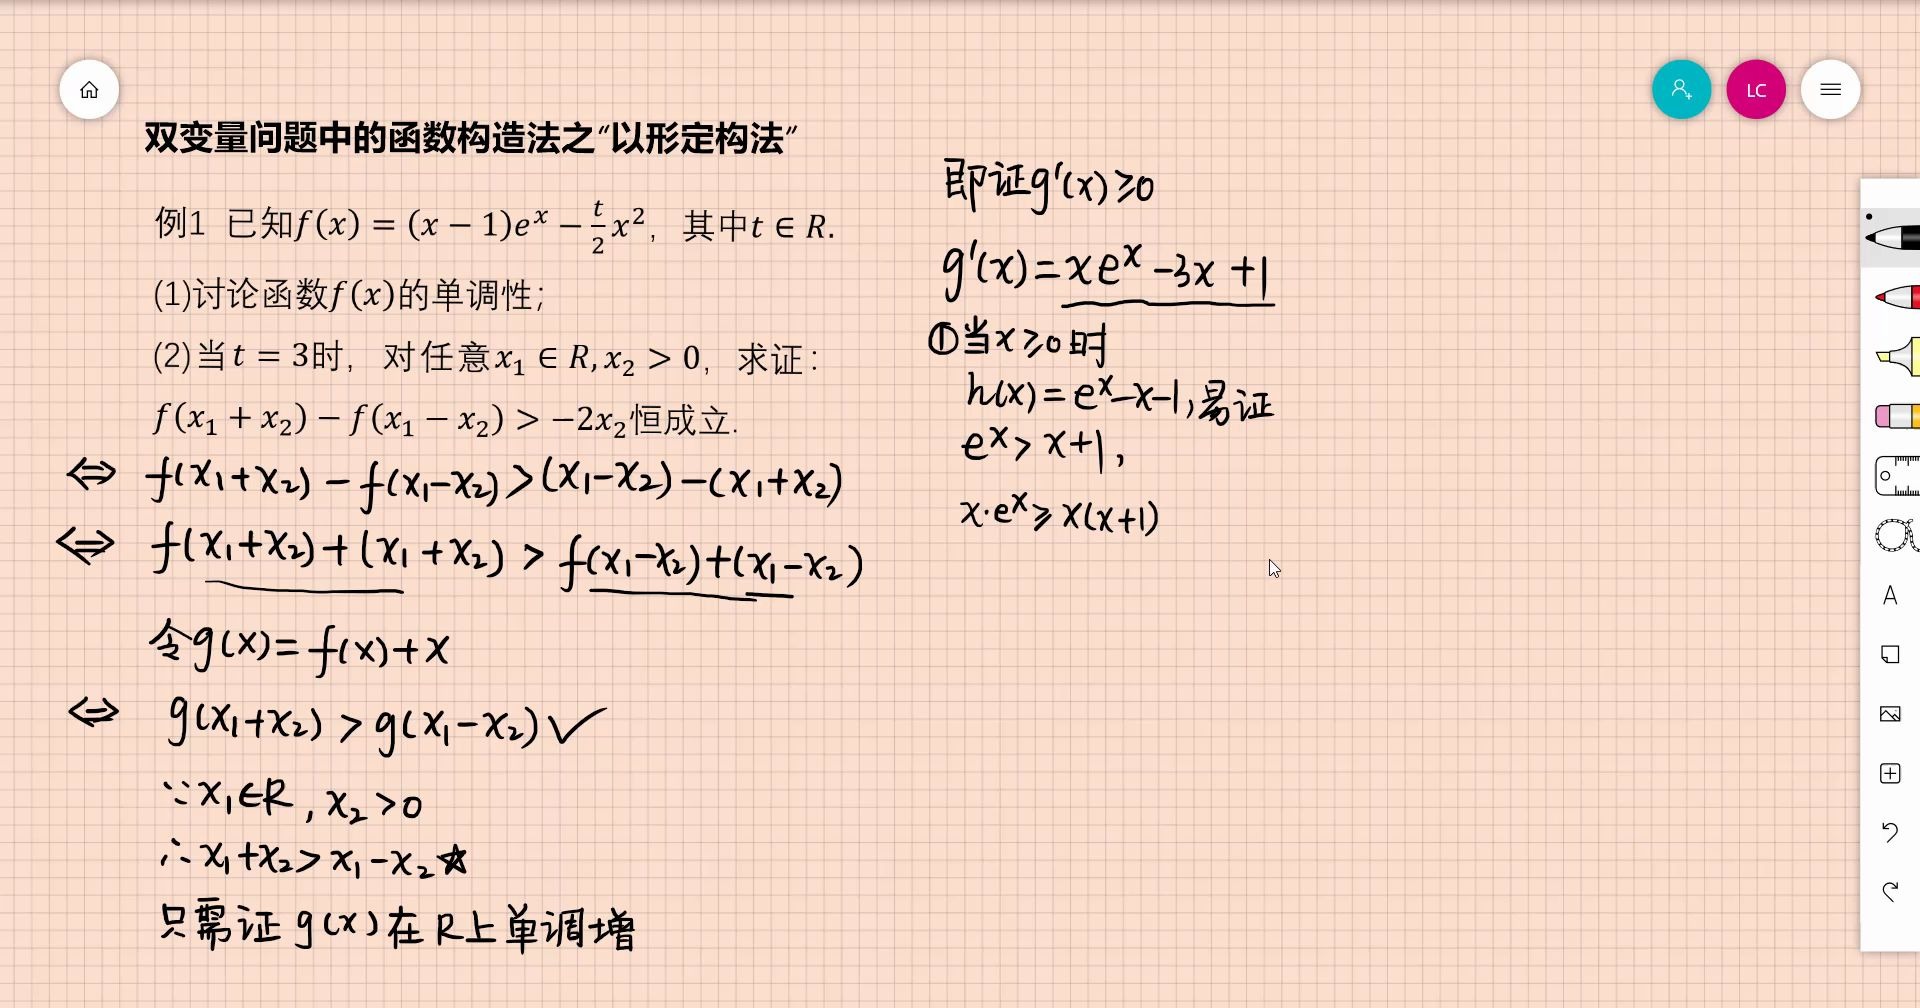 双变量问题中的函数构造法之"以形定构法"
例1 已知f(x) = (x − 1)e^x − t/2 x², 其中t ∈ R.
(1)讨论函数f(x)的单调性;
(2)当t = 3时, 对任意x₁ ∈ R, x₂ > 0, 求证:
f(x₁ + x₂) − f(x₁ − x₂) > −2x₂恒成立.
⇔ f(x₁+x₂) − f(x₁−x₂) > (x₁−x₂) − (x₁+x₂)
⇔ f(x₁+x₂) + (x₁+x₂) > f(x₁−x₂) + (x₁−x₂)
令g(x) = f(x) + x
⇔ g(x₁+x₂) > g(x₁−x₂) ✓
∵ x₁∈R, x₂ > 0
∴ x₁+x₂ > x₁−x₂ ☆
只需证 g(x)在R上单调增
即证g′(x) ≥ 0
g′(x) = xe^x − 3x + 1
①当x ≥ 0时
h(x) = e^x − x − 1, 易证
e^x > x+1,
x·e^x ≥ x(x+1)
LC
A